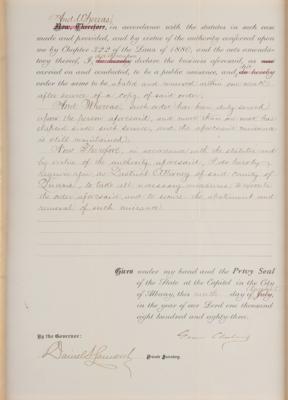 And Whereas,
Now, Therefore, in accordance with the statutes in such case
made and provided, and by virtue of the authority conferred upon
me by Chapter 322 of the Laws of 1880, and the acts amenda-
tory thereof, I, do hereby declare the business aforesaid, as now
carried on and conducted, to be a public nuisance, and do hereby
order the same to be abated and removed within one week
after service of a copy of said order;
And Whereas, Such order has been duly served
upon the person aforesaid, and more than one week has
elapsed since such service, and the aforesaid nuisance
is still maintained;
Now Therefore, in accordance with the statutes and
by virtue of the authority aforesaid, I do hereby
require you as District Attorney of said county of
Queens, to take all necessary measures to execute
the order aforesaid and to secure the abatement and
removal of such nuisance.
Given under my hand and the Privy Seal
of the State at the Capitol in the City
of Albany, this day of July,
in the year of our Lord one thousand
eight hundred and eighty-three.
By the Governor:
Grover Cleveland
Daniel S Lamont
Private Secretary.